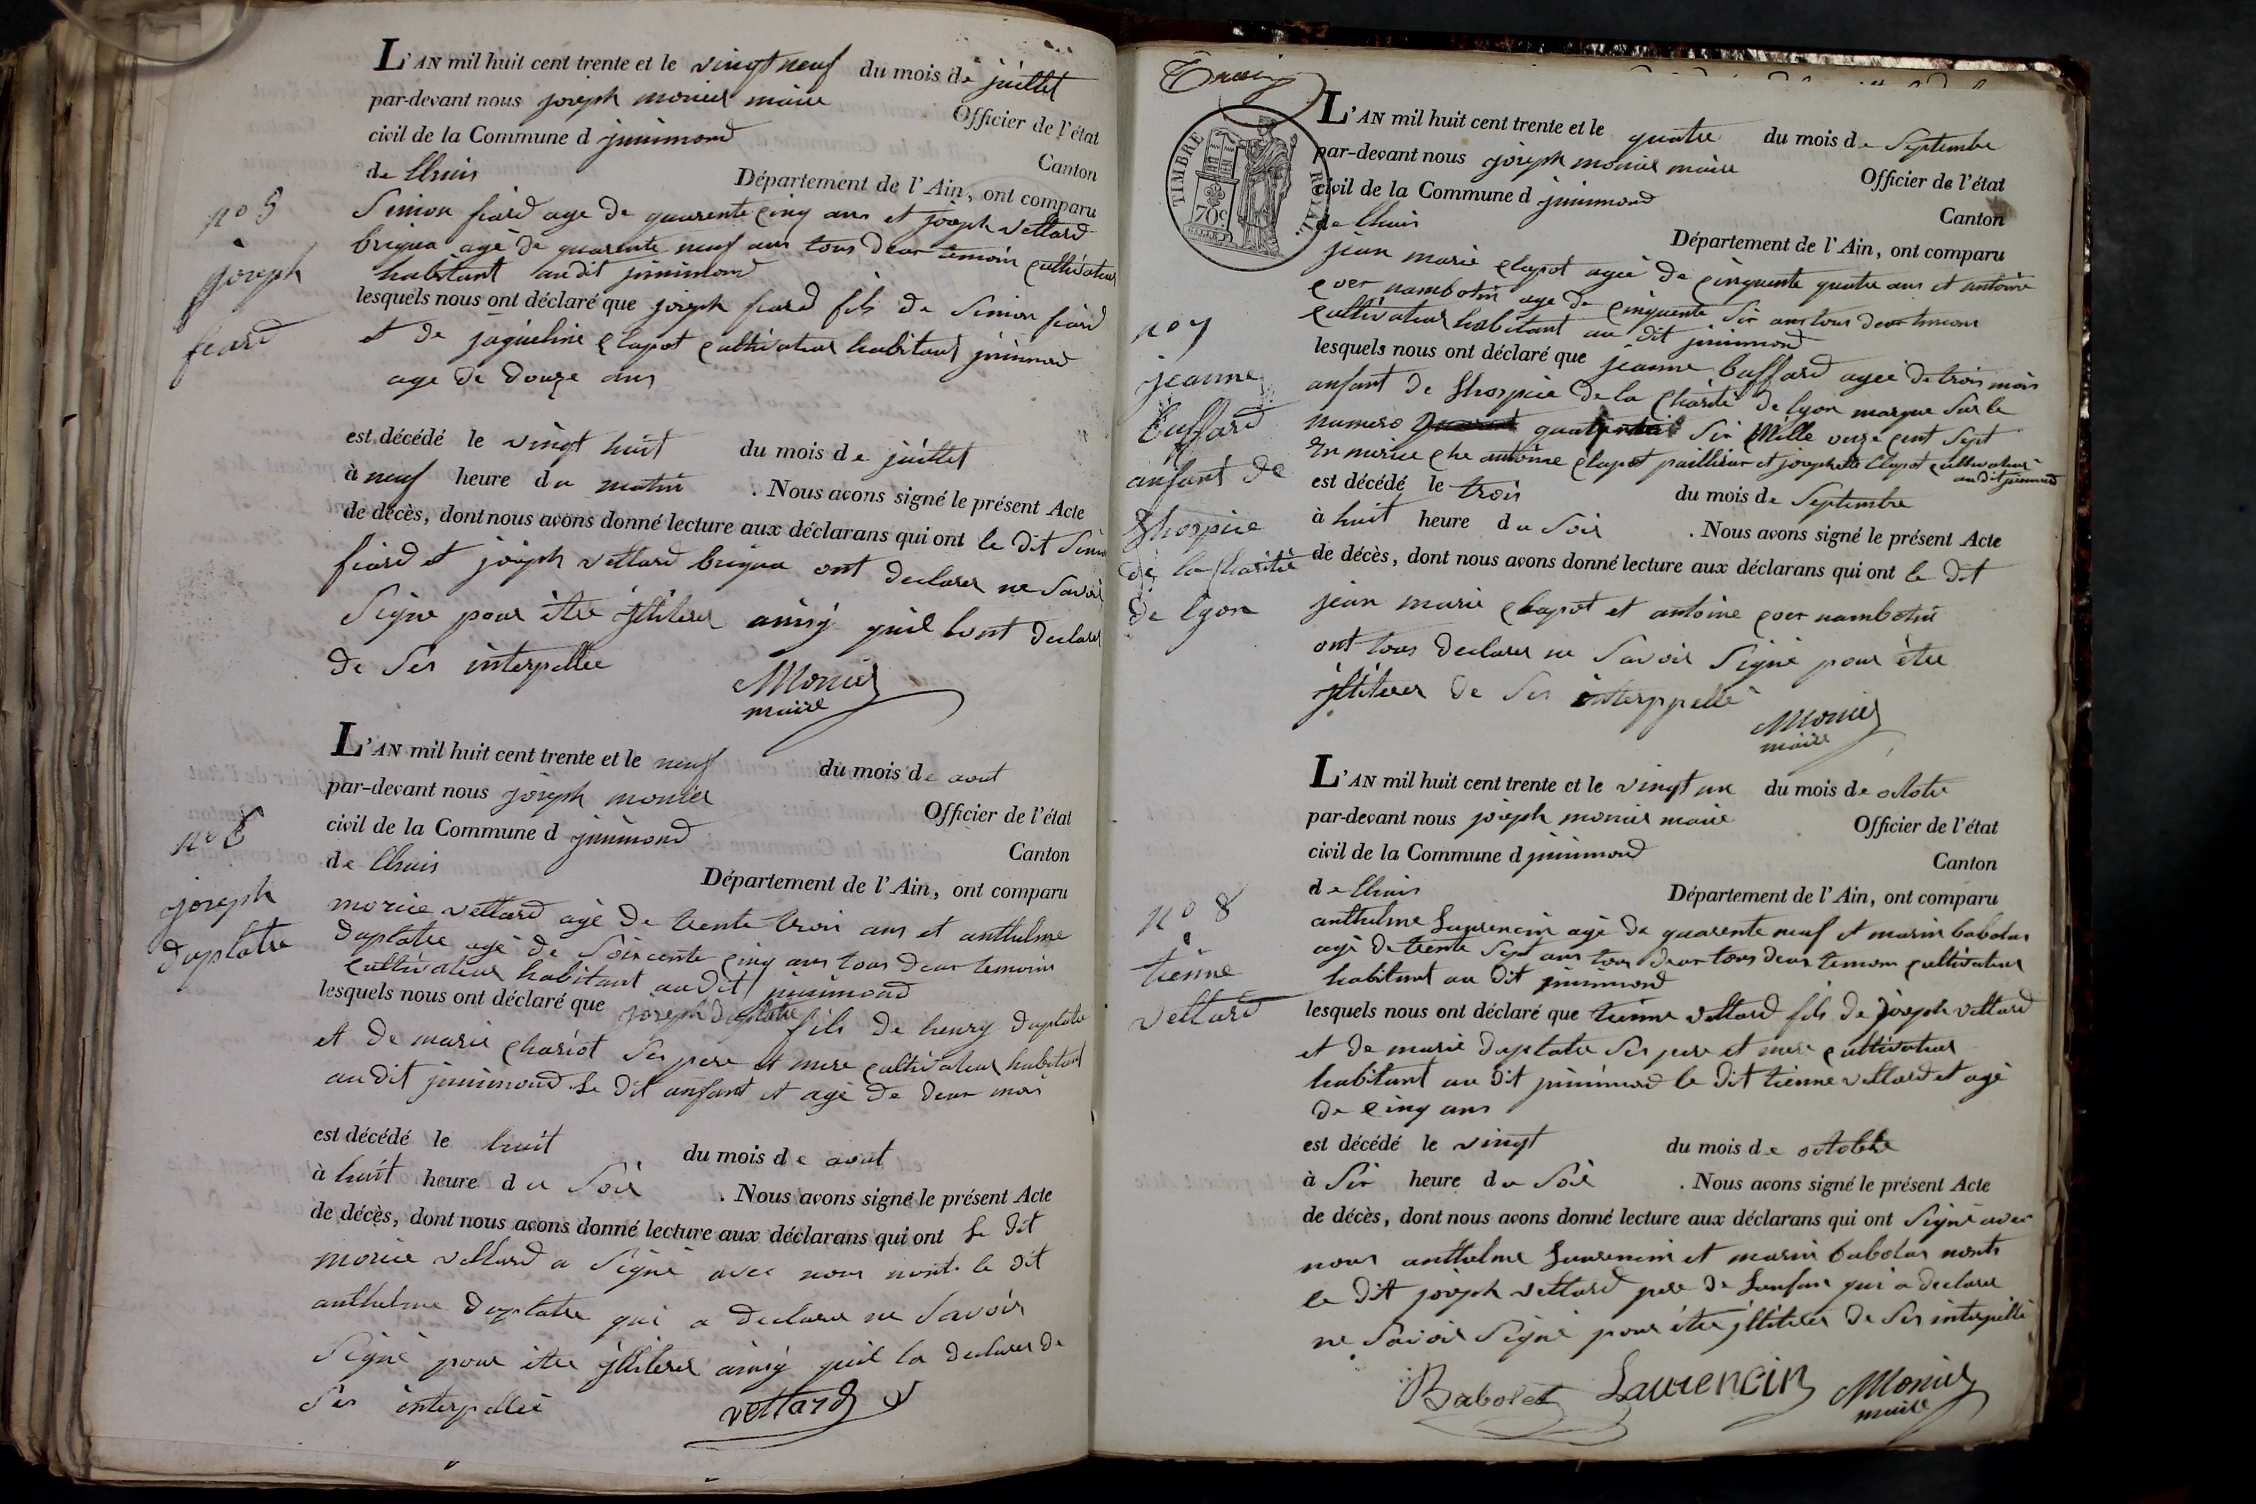 L'AN mil huit cent trente et le vingt neuf du mois de juillet
par-devant nous joseph monier maire Officier de l'état
civil de la Commune d jnnimond Canton
de Lhuis Département de l'Ain, ont comparu
Simon fiard age de quarente cinq ans et joseph vettard
briqua agé de quarente neuf ans tous deux temoin cultivateur
habitant audit jnnimond
lesquels nous ont déclaré que joseph fiard fils de Simon fiard
et de jaqueline clapot cultivateur habitant jnnimond
age de douze ans
est décédé le vingt huit du mois de juillet
à neuf heure du matin . Nous avons signé le présent Acte
de décès, dont nous avons donné lecture aux déclarans qui ont le dit Simon
fiard et joseph vettard briqua ont declarer ne Savoir
Signe pour être jlliterer ainsy quil lont declarer
de Ses interpellee
Monier
maire
no 5
joseph
fiard
L'AN mil huit cent trente et le neuf du mois de aout
par-devant nous joseph monier Officier de l'état
civil de la Commune d jnnimond Canton
de Lhuis Département de l'Ain, ont comparu
morice vettard agé de trente trois ans et anthelme
duplatre agé de Soixcente cinq ans tous deux temoins
cultivateur habitant audit jnnimond
lesquels nous ont déclaré que joseph duplatre fils de henry duplatre
et de marie chariot Ses pere et mere cultivateur habitant
audit jnnimond Le dit anfant et agé de deux mois
est décédé le huit du mois de aout
à huit heure du Soir . Nous avons signé le présent Acte
de décès, dont nous avons donné lecture aux déclarans qui ont Le dit
morice vettard a Signé avec nous nont le dit
anthelme duplatre qui a declarer ne Savoir
Signé pour être jlliterer ainsy quil la declarer de
Ses interpellée
vettard
no 6
joseph
duplatre
TIMBRE ROYAL
70c
L'AN mil huit cent trente et le quatre du mois de Septembre
par-devant nous joseph monier maire Officier de l'état
civil de la Commune d jnnimond Canton
de Lhuis Département de l'Ain, ont comparu
jean marie clapot agée de cinquente quatre ans et antoine
coer nambotin age de cinquente Six ans tous deux temoins
cultivateur habitant au dit jnnimond
lesquels nous ont déclaré que jeanne buffard agée de trois mois
anfant de Lhospice de la Charité de lyon marque Sur le
numero Six Mille onze cent Sept
En nurice che antoine clapot et josephette Clapot cultivateur
audit jnnimond
est décédé le trois du mois de Septembre
à huit heure du Soir . Nous avons signé le présent Acte
de décès, dont nous avons donné lecture aux déclarans qui ont le dit
jean marie clapot et antoine coer nambotin
ont tous declarer ne Savoir Signé pour être
jlliterer de Ses interppellé
Monier
maire
no 7
jeanne
buffard
anfant de
Lhospice
de la Charité
de lyon
L'AN mil huit cent trente et le vingt un du mois de octobre
par-devant nous joseph monier maire Officier de l'état
civil de la Commune d jnnimond Canton
de Lhuis Département de l'Ain, ont comparu
anthelme Laurencin agé de quarente neuf et marin babolat
agé de trente Sept ans tous deux tous deux temoin cultivateur
habitant au dit jnnimond
lesquels nous ont déclaré que tienne vettard fils de joseph vettard
et de marie duplatre Ses pere et mere cultivateur
habitant au dit jnnimond le dit tienne vettard et agé
de cinq ans
est décédé le vingt du mois de octobre
à Six heure du Soir . Nous avons signé le présent Acte
de décès, dont nous avons donné lecture aux déclarans qui ont Signé avec
nous anthelme Laurencin et marin babolat nont
le dit joseph vettard pere de Lanfan qui a declarer
ne Savoir Signé pour être jlliterer de Ses interpellé
Babolat Laurencin Monier
maire
no 8
tienne
vettard